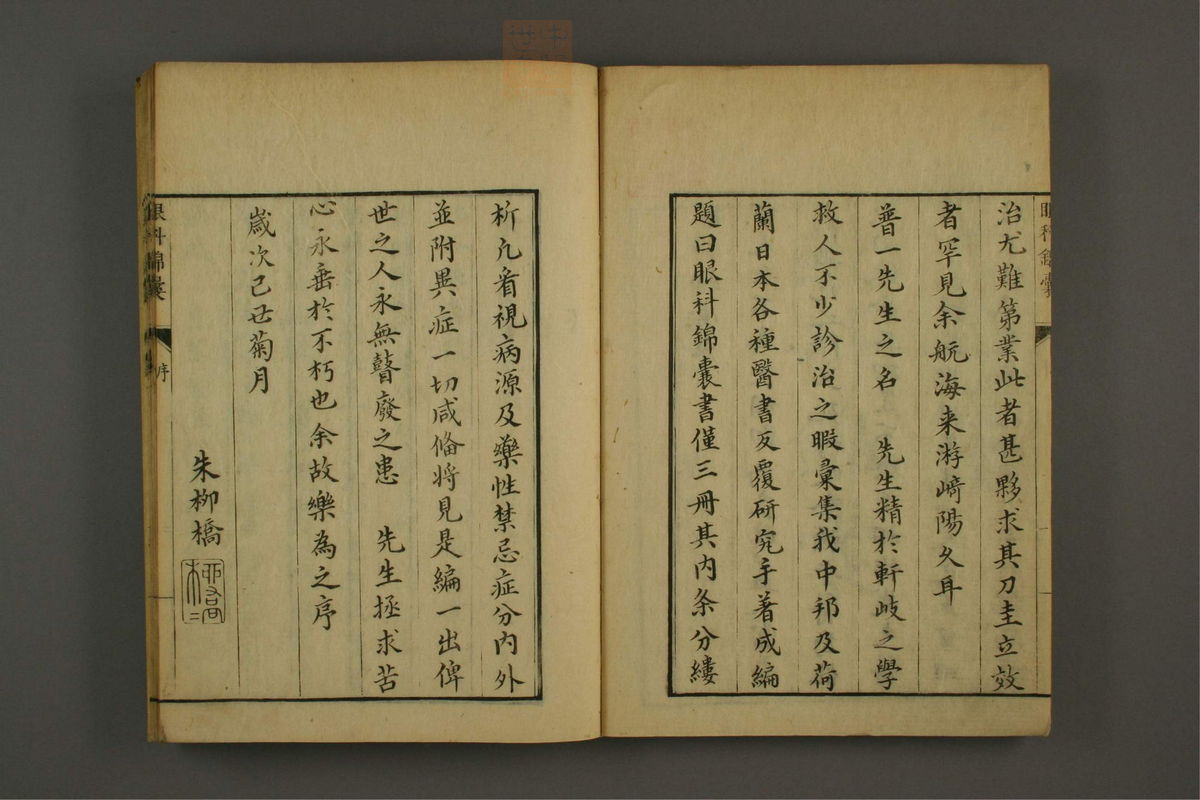 治尤難第業此者甚夥求其刀圭立效
者罕見余航海来游﨑陽久耳
普一先生之名　先生精於軒岐之學
救人不少診治之暇彙集我中邦及荷
蘭日本各種醫書反覆研究手著成編
題曰眼科錦囊書僅三冊其内条分縷
析凡看視病源及藥性禁忌症分内外
並附異症一切咸俻將見是編一出俾
世之人永無瞽廢之患　先生拯求苦
心永垂於不朽也余故樂為之序
歲次己丑菊月
朱柳橋
眼科錦囊
序